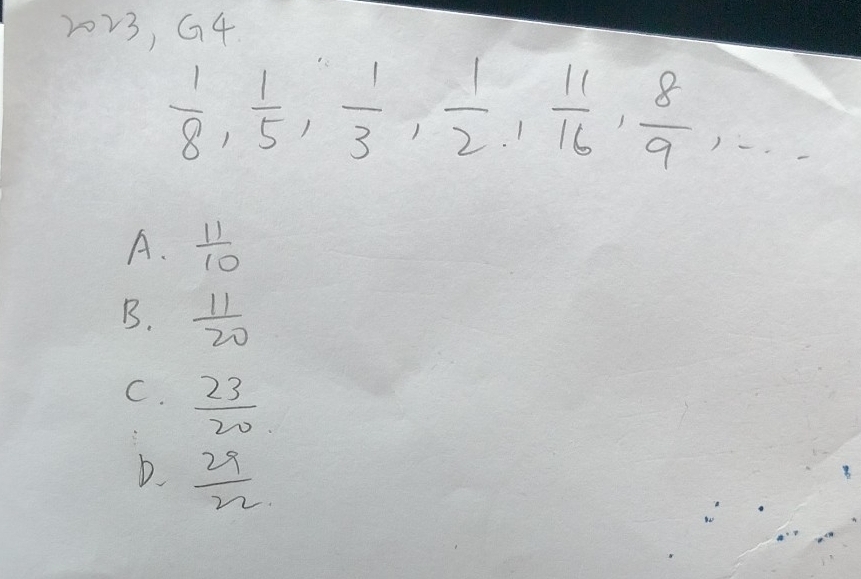 2023, G4
1/8, 1/5, 1/3, 1/2, 11/16, 8/9, ....
A. 11/10
B. 11/20
C. 23/20.
D. 29/22.